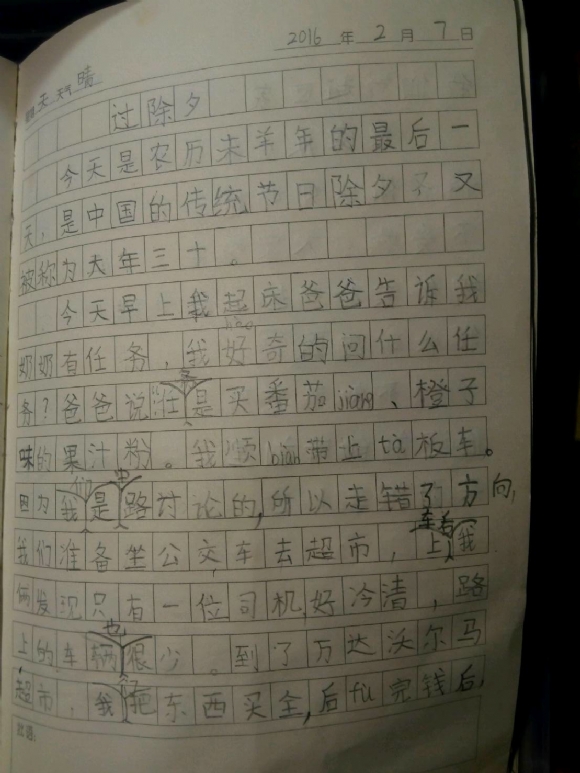 2016 年 2 月 7 日
天 天气 晴
过除夕
今天是农历未羊年的最后一
天,是中国的传统节日除夕又
被称为大年三十。
今天早上我起床爸爸告诉我
奶奶有任务,我好奇的问什么任
务?爸爸说:“任务是买番茄jiàng、橙子
味的果汁粉。我顺biàn带上tà板车。
因为我们是路中讨论的,所以走错了方向,
我们准备坐公交车去超市,上车后我
们发现只有一位司机,好冷清,路
上的车辆也很少。到了万达沃尔马
超市,我们把东西买全,后fù完钱后,
批语: